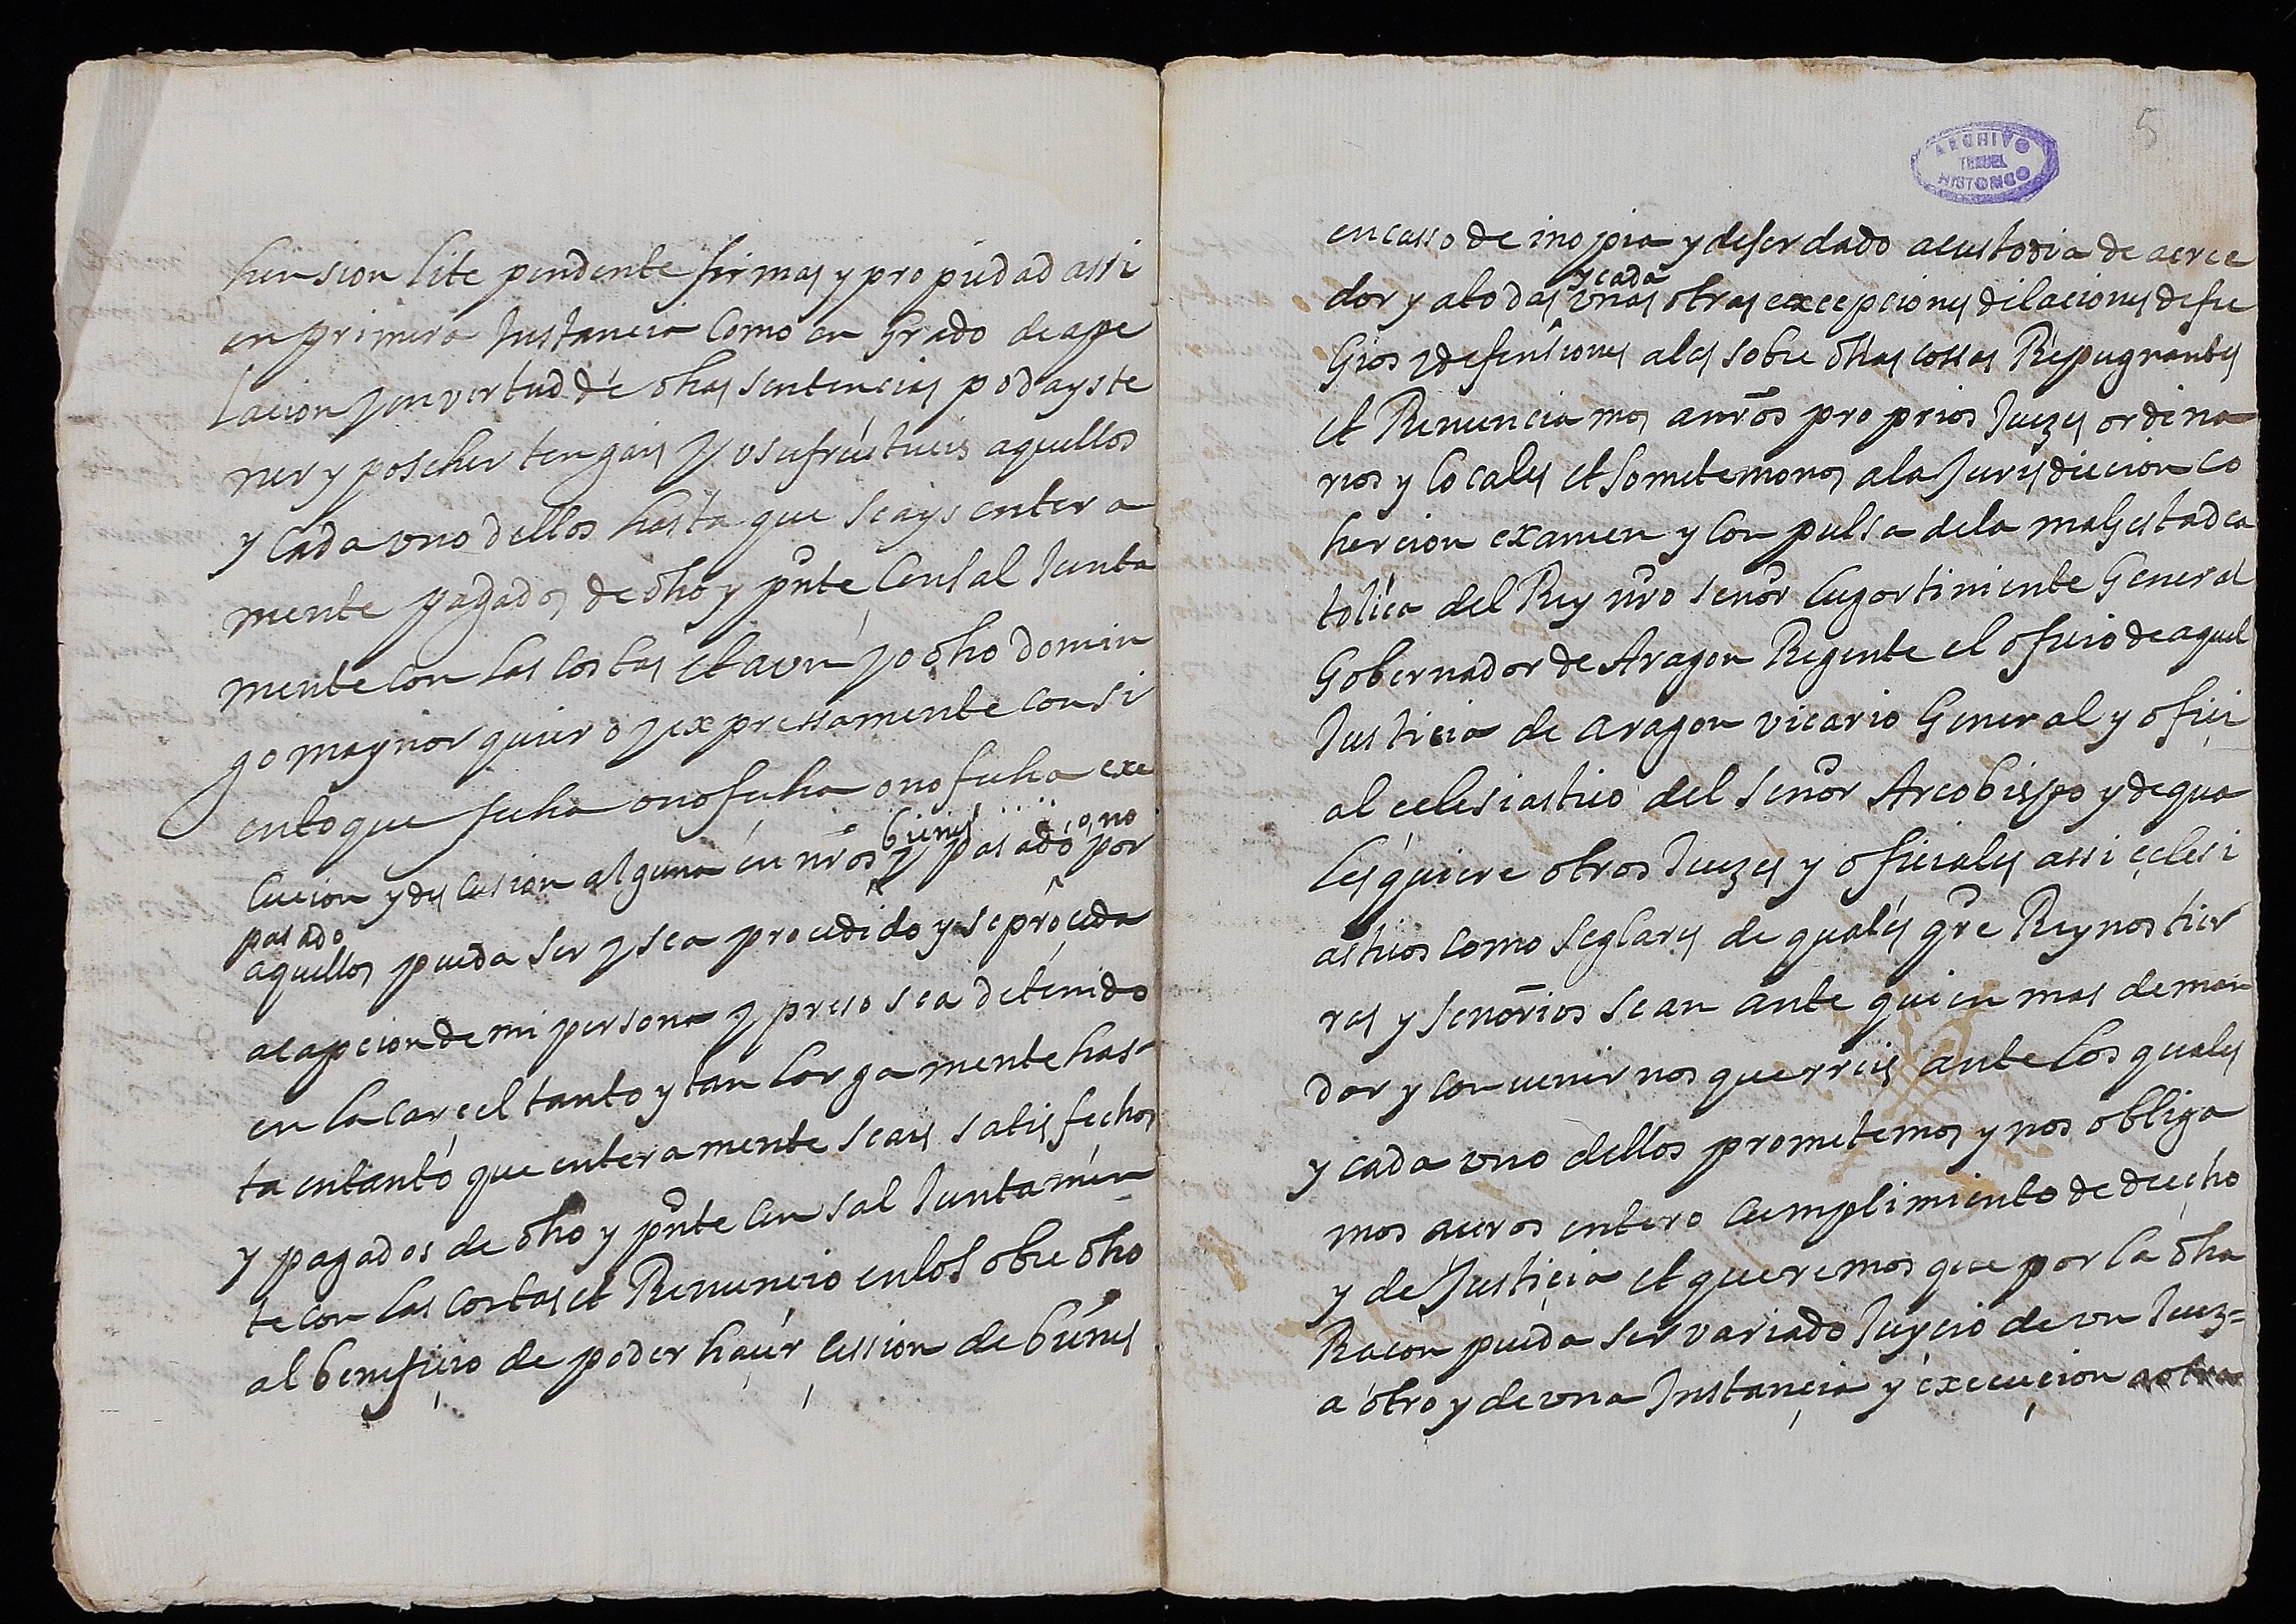 hension lite pendente firmas y propiedad assi
en primera Instancia Como en Grado de ape
lacion y en vertud de dhas sentencias podays te
ner y poseher tengais y usufructueis aquellos
y Cada uno dellos hasta que seays entera
mente pagados de dho y pnte Censal Junta
mente con las costas et aun yo dho Domin
go maynor quiero y expressamente consi
ento que fecha o no fecha o no fecha exe
cucion y discusion alguna en nros bienes y pasado o no por
pasado
aquellos pueda ser y sea procedido y se proceda
a capcion de mi persona y preso sea detenido
en la carcel tanto y tan largamente has-
ta en tanto que enteramente seais satisfechos
y pagados de dho y pnte Censal Juntamen
te con las costas et Renuncio en lo sobredho
al beneficio de poder hacer cession de bienes
ARCHIVO
TERUEL
HISTORICO
5
en casso de inopia y deser dado a custodia de acree
dor y a todas y cada unas otras excepciones dilaciones defu
Gios y defensiones a las sobre dhas cossas Repugnantes
et Renunciamos a nros proprios Juezes ordina
rios y locales et sometemonos a la Jurisdiccion co
hercion examen y conpulsa de la magestad ca
tolica del Rey nro señor lugartiniente General
Gobernador de Aragon Regente el oficio de aquel
Justicia de Aragon vicario General y ofici
al eclesiastico del señor Arcobispo y de qua
lesquiere otros Juezes y oficiales assi eclesi
asticos como seglares de quales qre Reynos tier
ras y señorios sean ante quien mas deman
dar y convenirnos querreis ante los quales
y cada uno dellos prometemos y nos obliga
mos aceros entero cumplimiento de drecho
y de Justicia et queremos que por la dha
Racon pueda ser variado Juycio de un Juez=
a otro y de una Instancia y execucion a otra